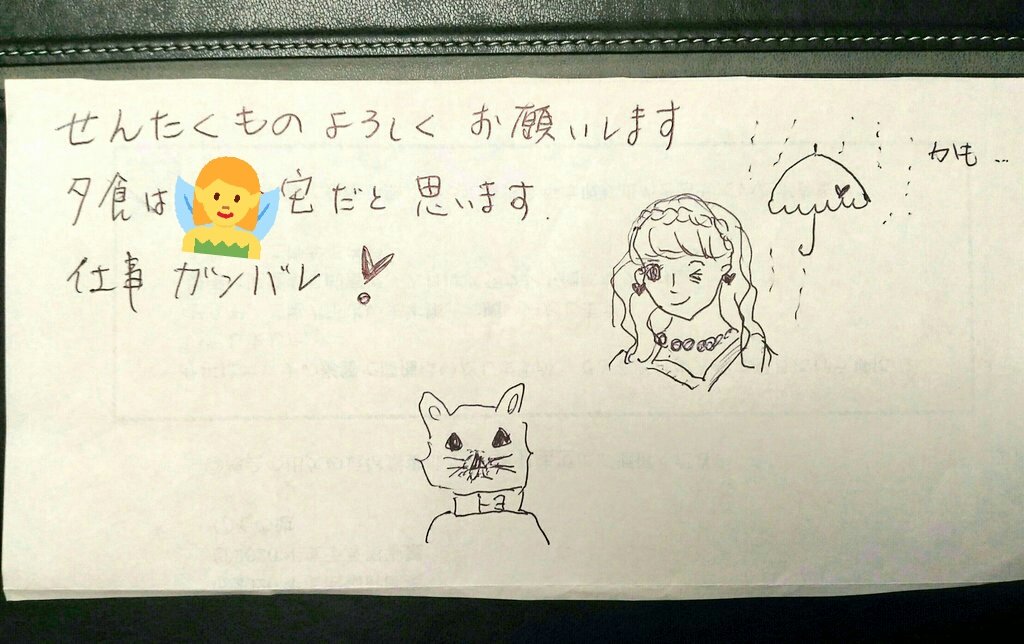 せんたくもの よろしく お願いします
夕食は宅だと思います.
仕事 ガンバレ!
かも…
トヨ